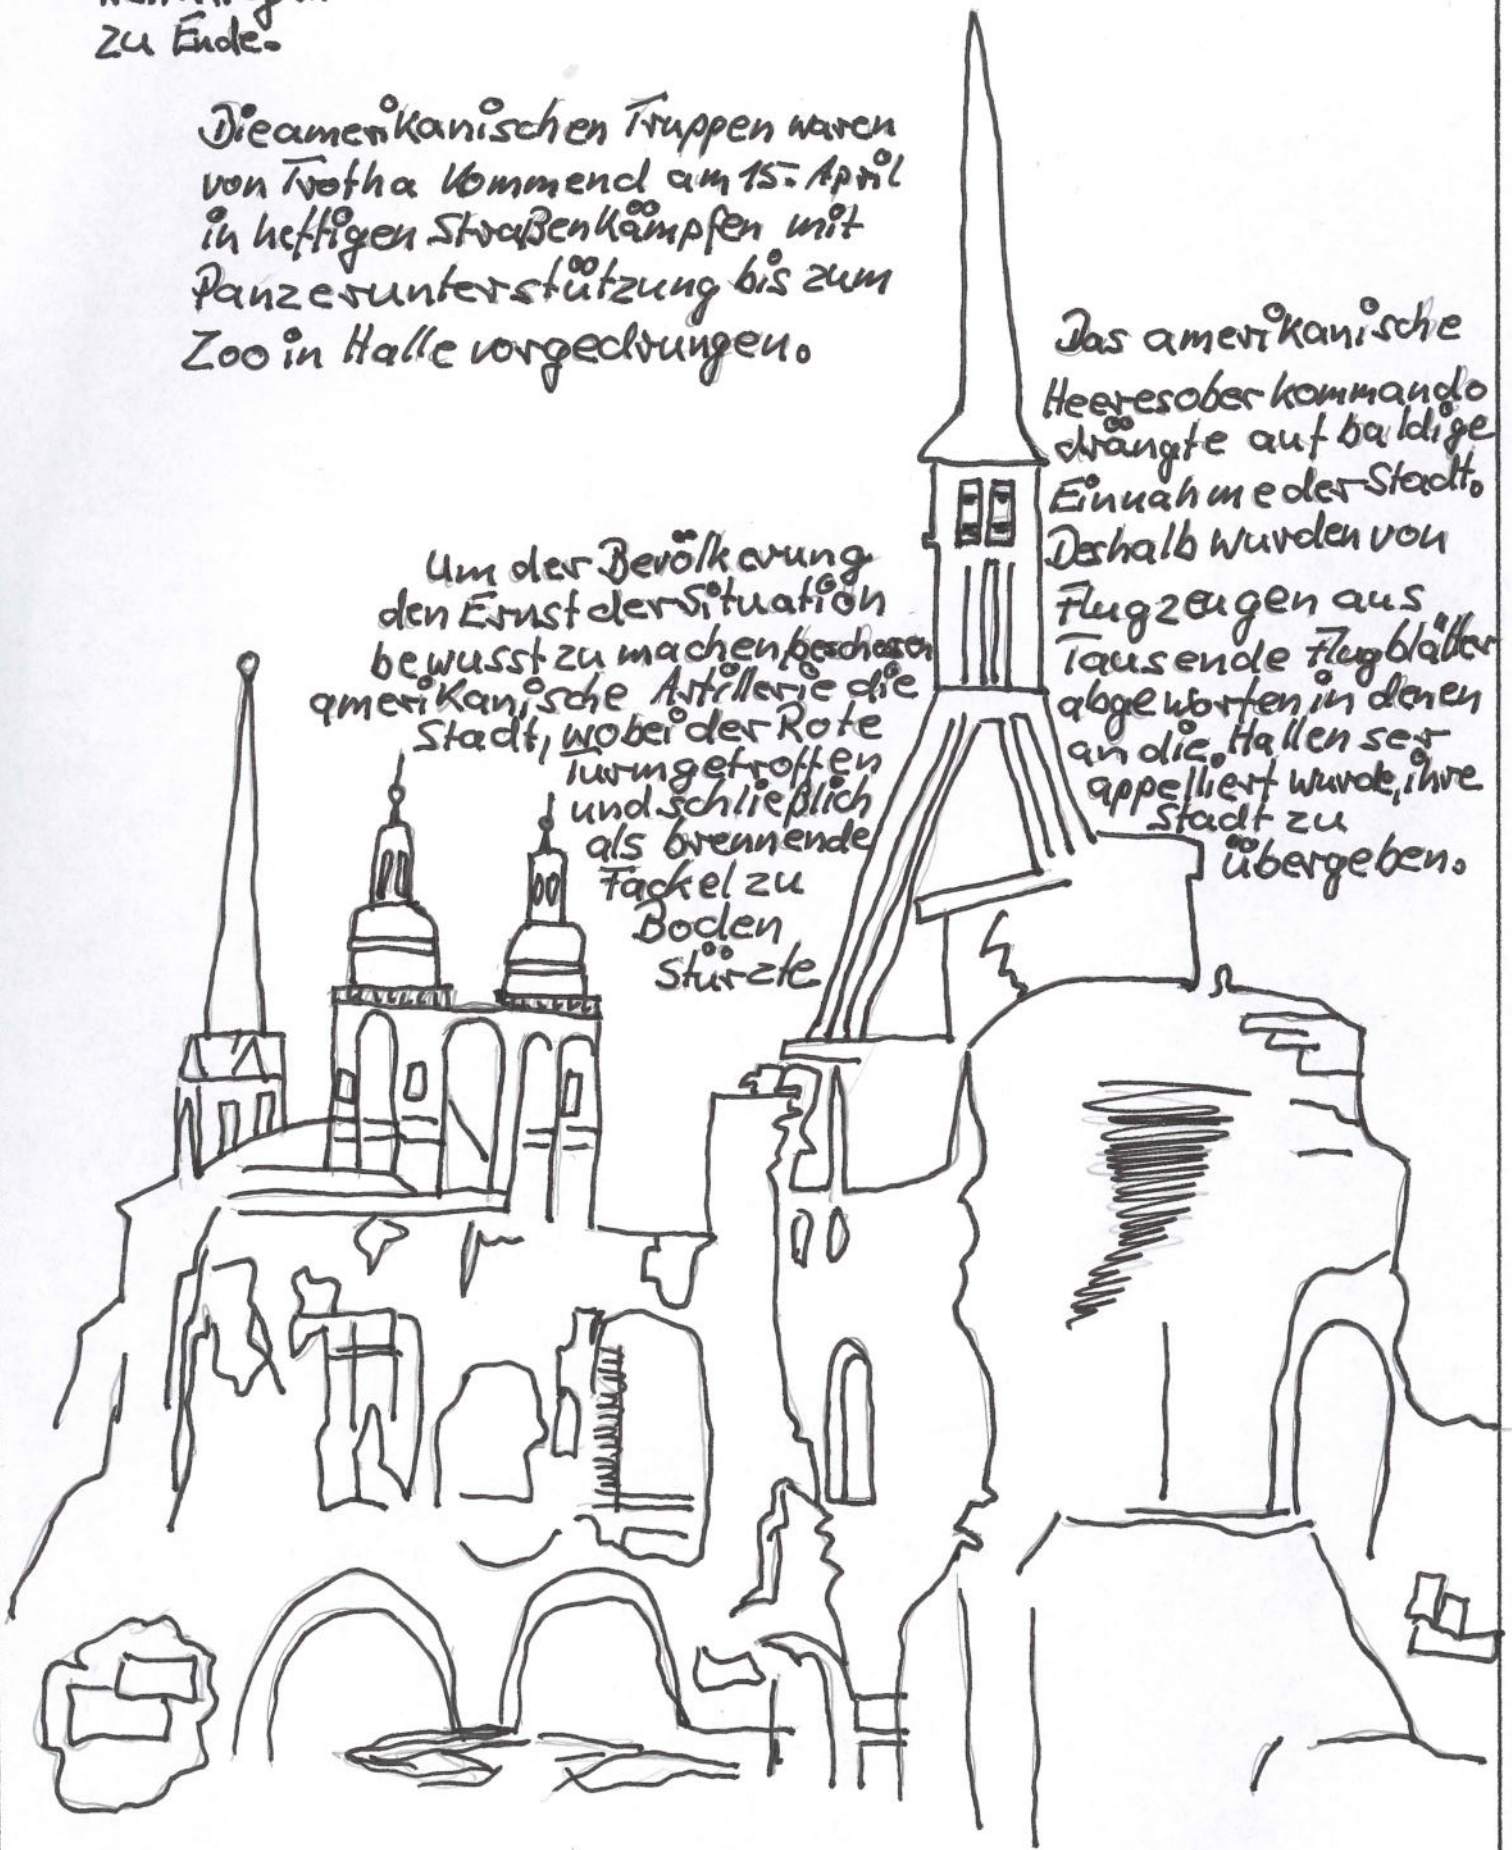 zu Ende.
Die amerikanischen Truppen waren
von Trotha kommend am 15. April
in heftigen Straßenkämpfen mit
Panzerunterstützung bis zum
Zoo in Halle vorgedrungen.
Das amerikanische
Heeresoberkommando
drängte auf baldige
Einnahme der Stadt.
Deshalb wurden von
Flugzeugen aus
Tausende Flugblätter
abgeworfen, in denen
an die Hallenser
appelliert wurde, ihre
Stadt zu
übergeben.
Um der Bevölkerung
den Ernst der Situation
bewusst zu machen, beschossen
amerikanische Artillerie die
Stadt, wobei der Rote
Turm getroffen
und schließlich
als brennende
Fackel zu
Boden
stürzte